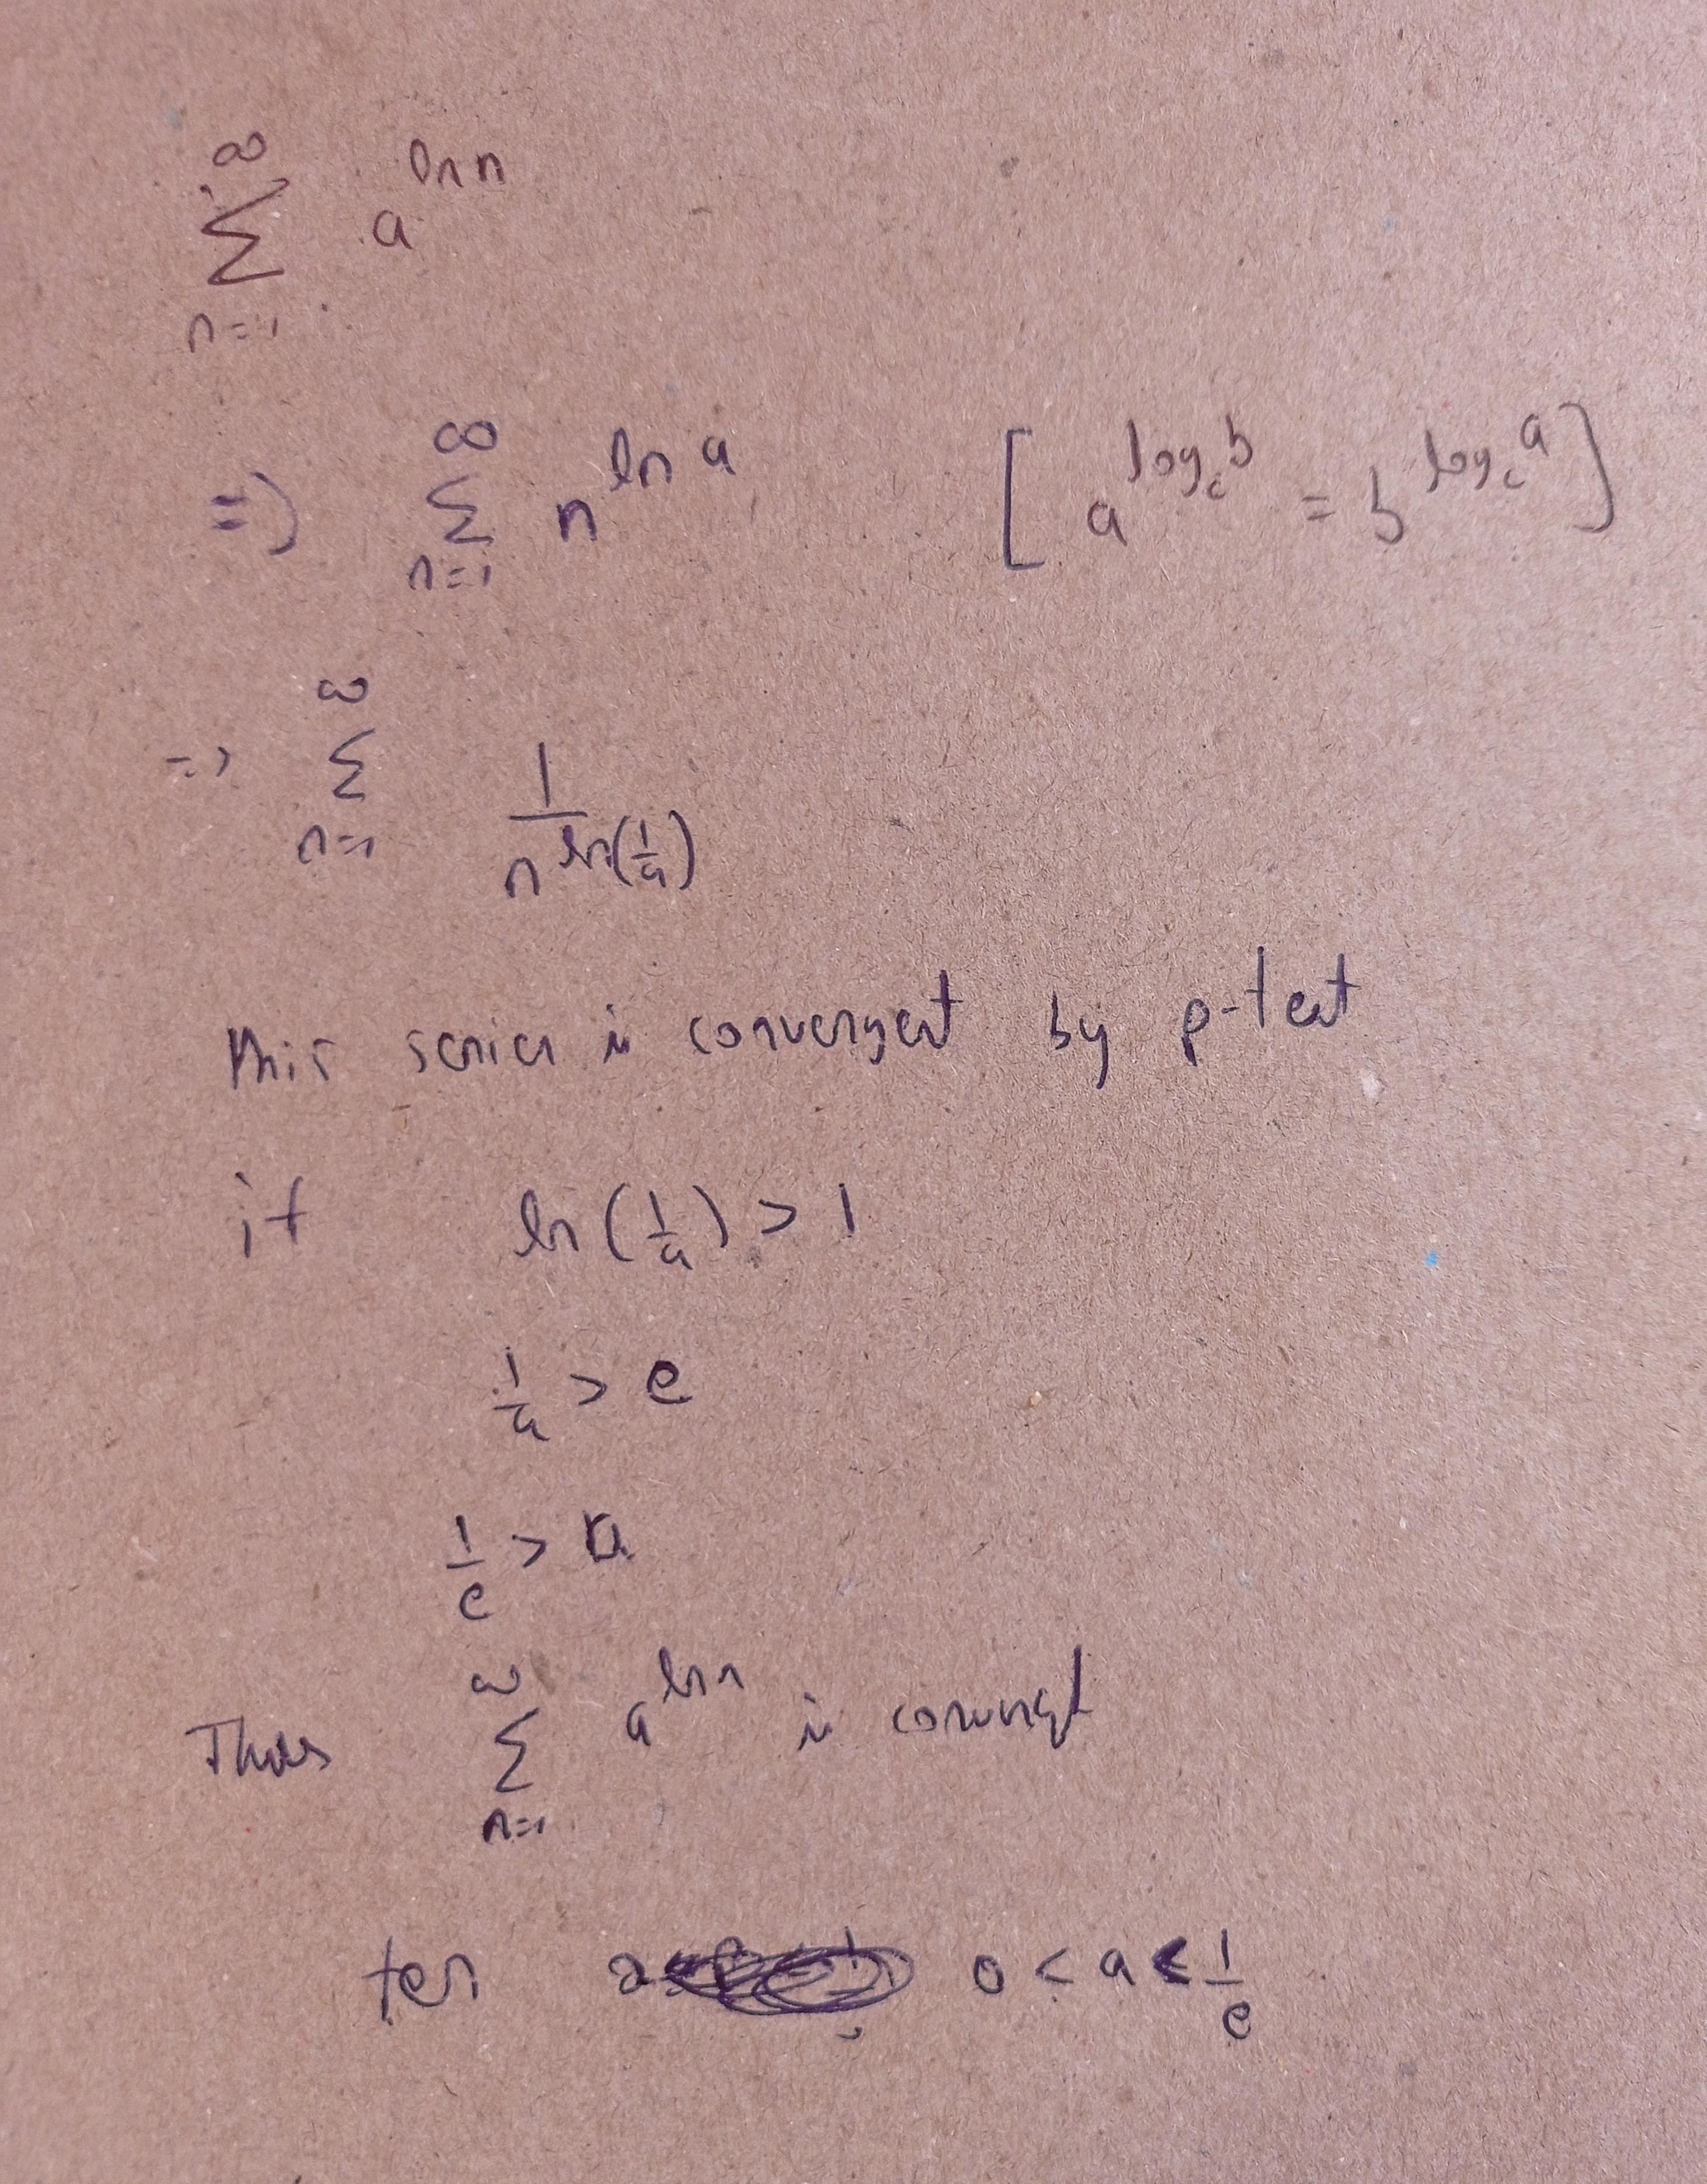 ∞ Σ n=1 a^{ln n}
=> ∞ Σ n=1 n^{ln a} [a^{log_c b} = b^{log_c a}]
=> ∞ Σ n=1 1/n^{ln(1/a)}
this series is convergent by p-test
if ln(1/a) > 1
1/a > e
1/e > a
Thus ∞ Σ n=1 a^{ln n} is convergt
for 0 < a < 1/e